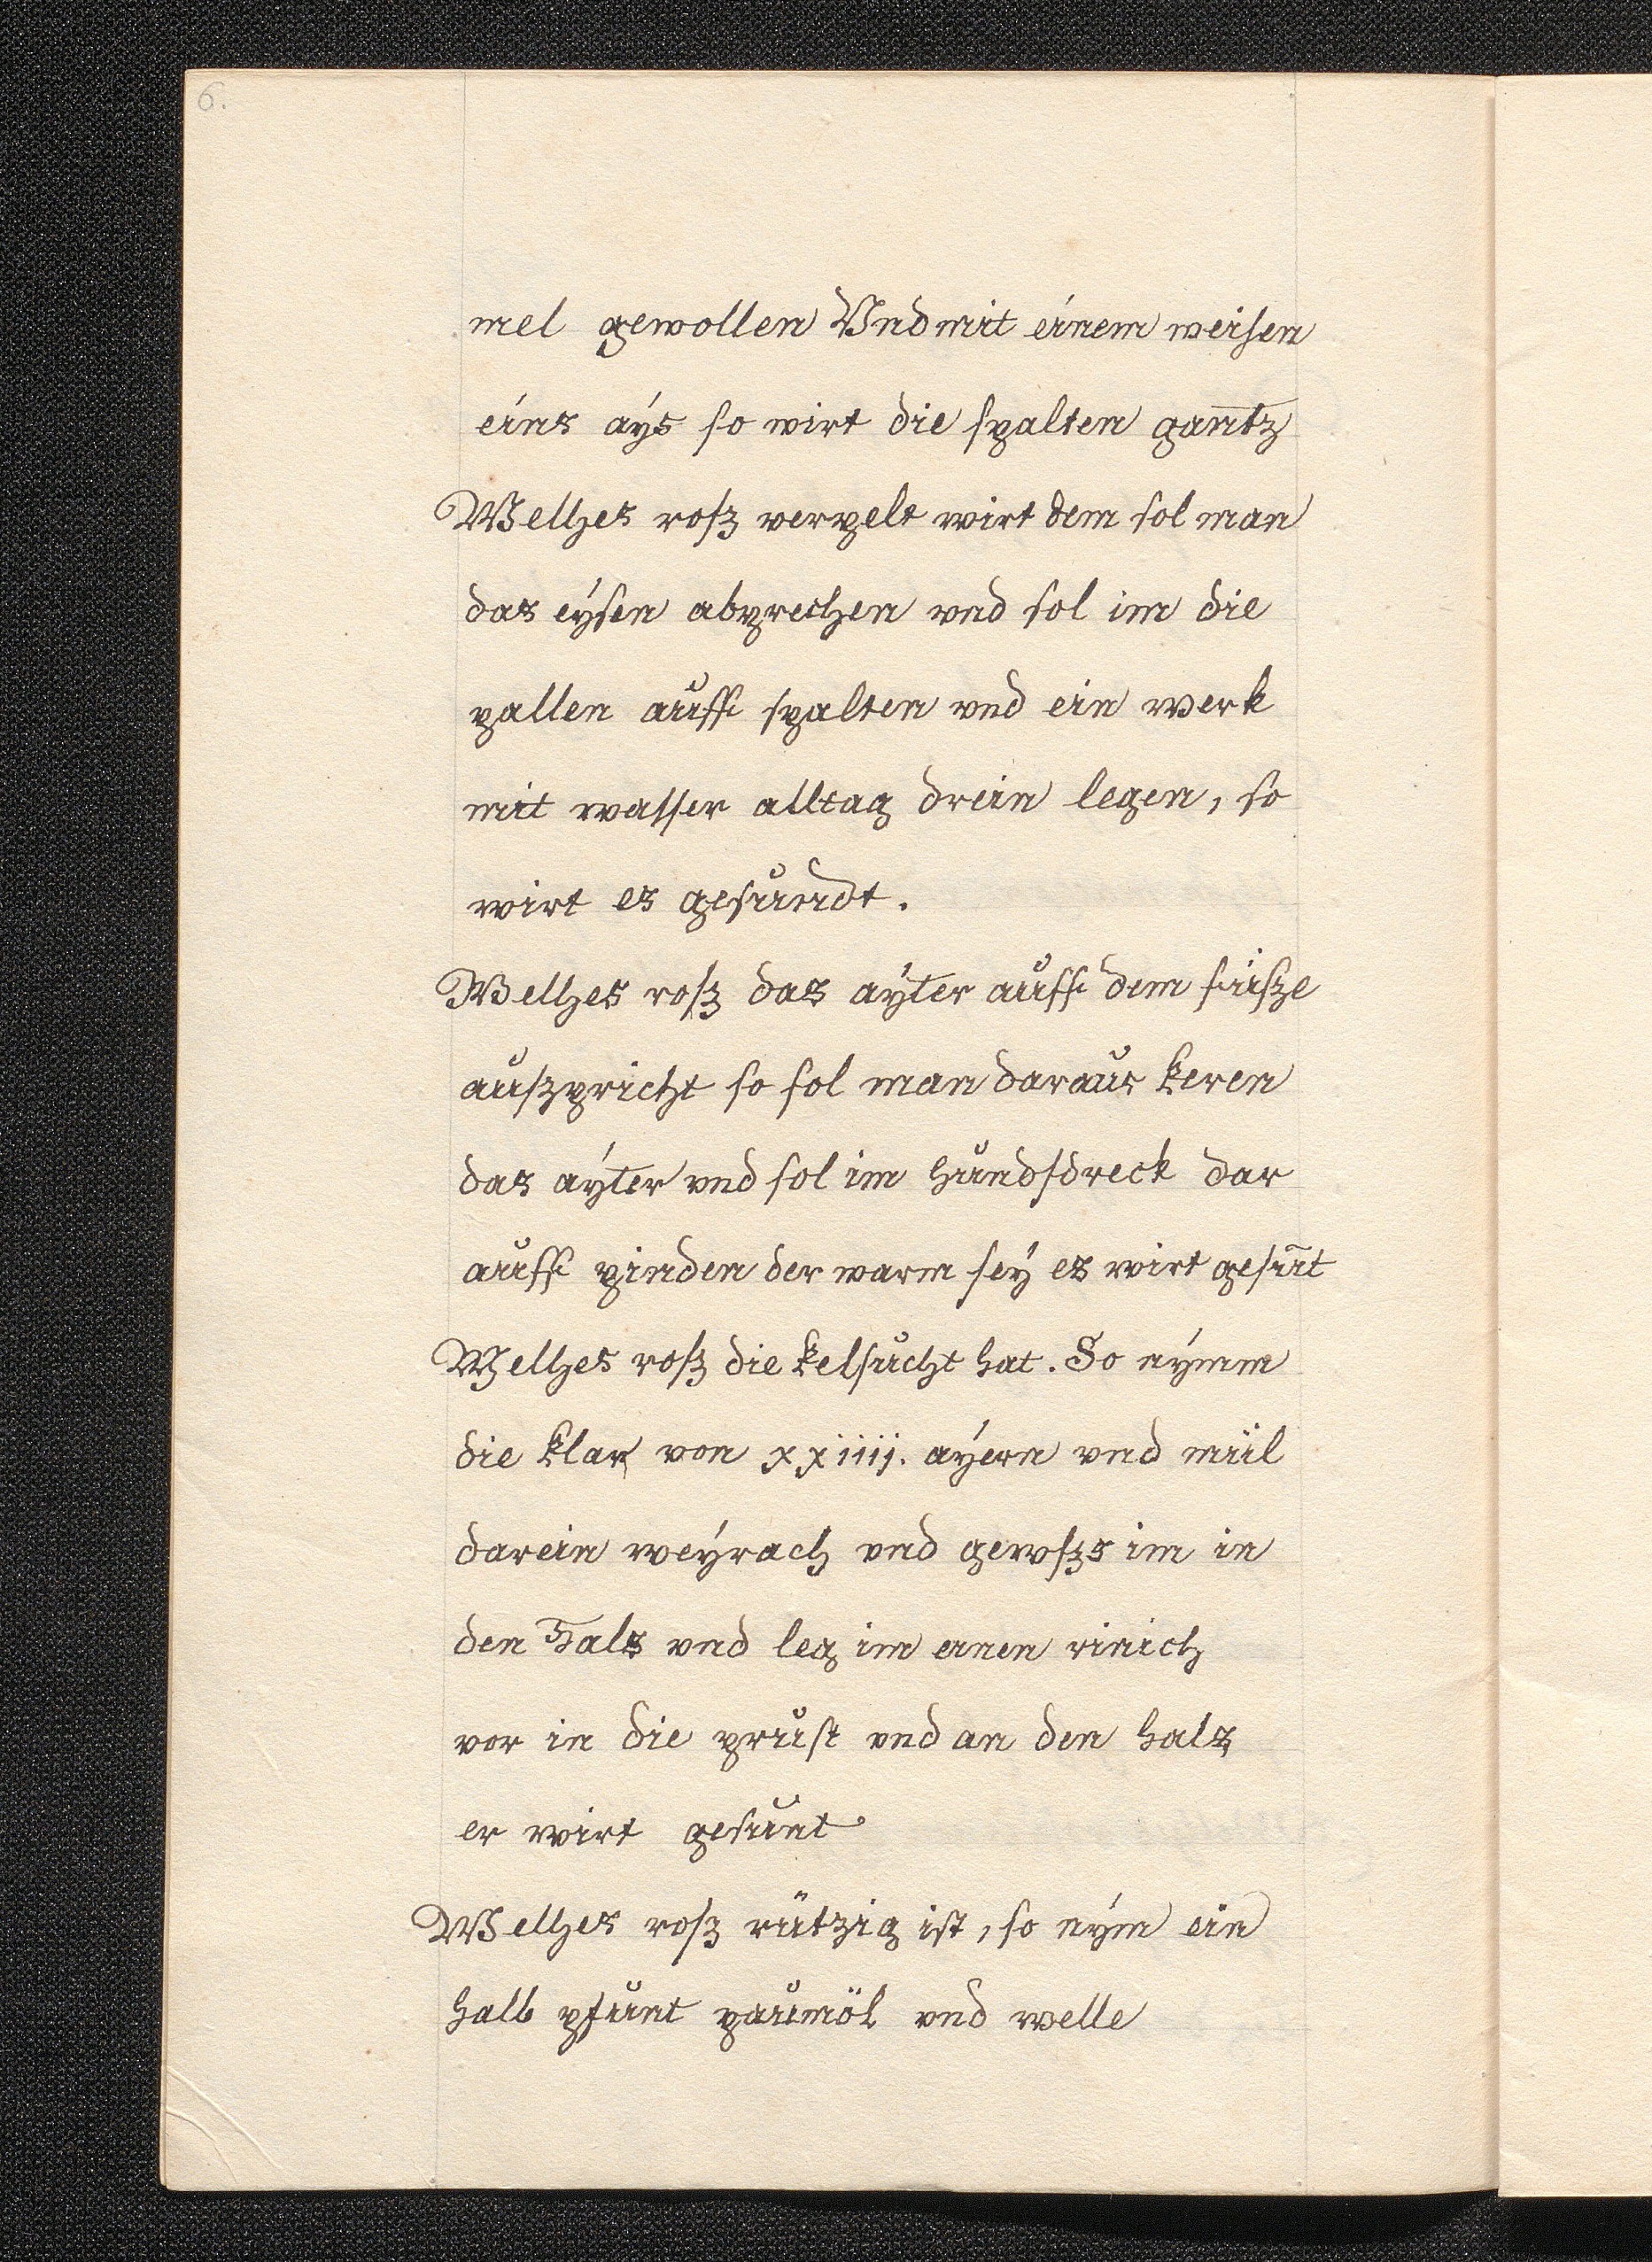 6.
mel gewollen Vnd mit einem weisen
eins aÿs so wirt die spalten gan̄tz
Welhes rosz verpelt wirt dem sol man
das eÿsen abprechen vnd sol im die
pallen auff spalten vnd ein werk
mit wasser alltag drein legen, so
wirt es gesundt.
Welhes rosz das aÿter auff dem füsze
auszpricht so sol man daraus keren
das aÿter vnd sol im hundsdreck dar
auff pinden der warm seÿ es wirt gesūt
Welhes rosz die kelsucht hat. So nÿmm
die klar von xxiiij. aÿern vnd mül
darein weÿrach vnd gewszs im in
den Hals vnd leg im einen rinich
vor in die prust vnd an den hals
er wirt gesunt
Welhes rosz rützig ist, so nÿm ein
halb pfunt paumöl vnd welle